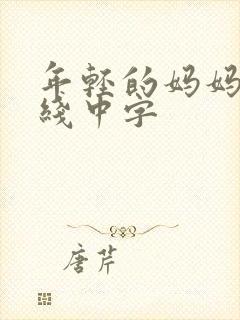 年轻的妈妈
线中字
唐芹